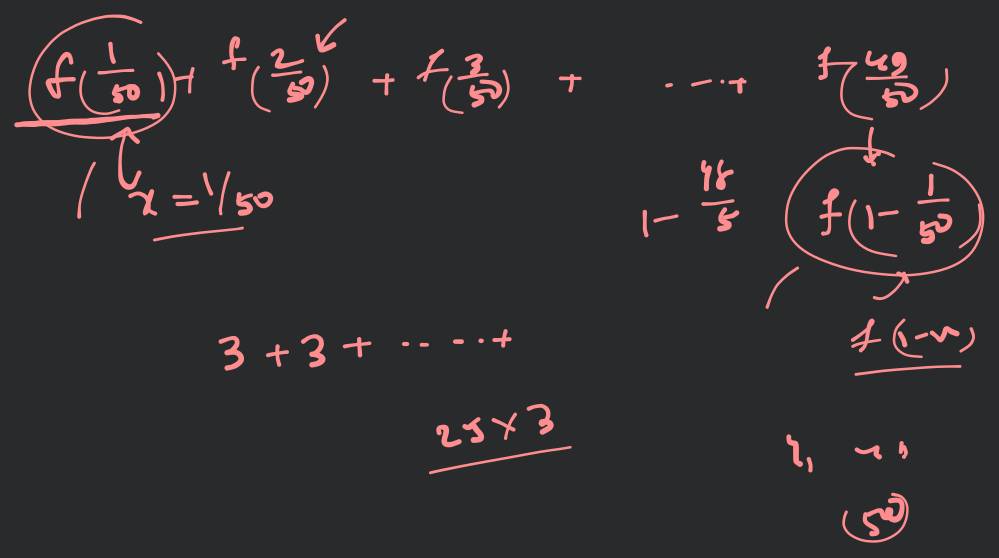 f(1/50) + f(2/50) + f(3/50) + ....+ f(49/50)
x = 1/50
1 - 48/5
f(1 - 1/50)
f(1-x)
3 + 3 + ......+
25 × 3
(50)